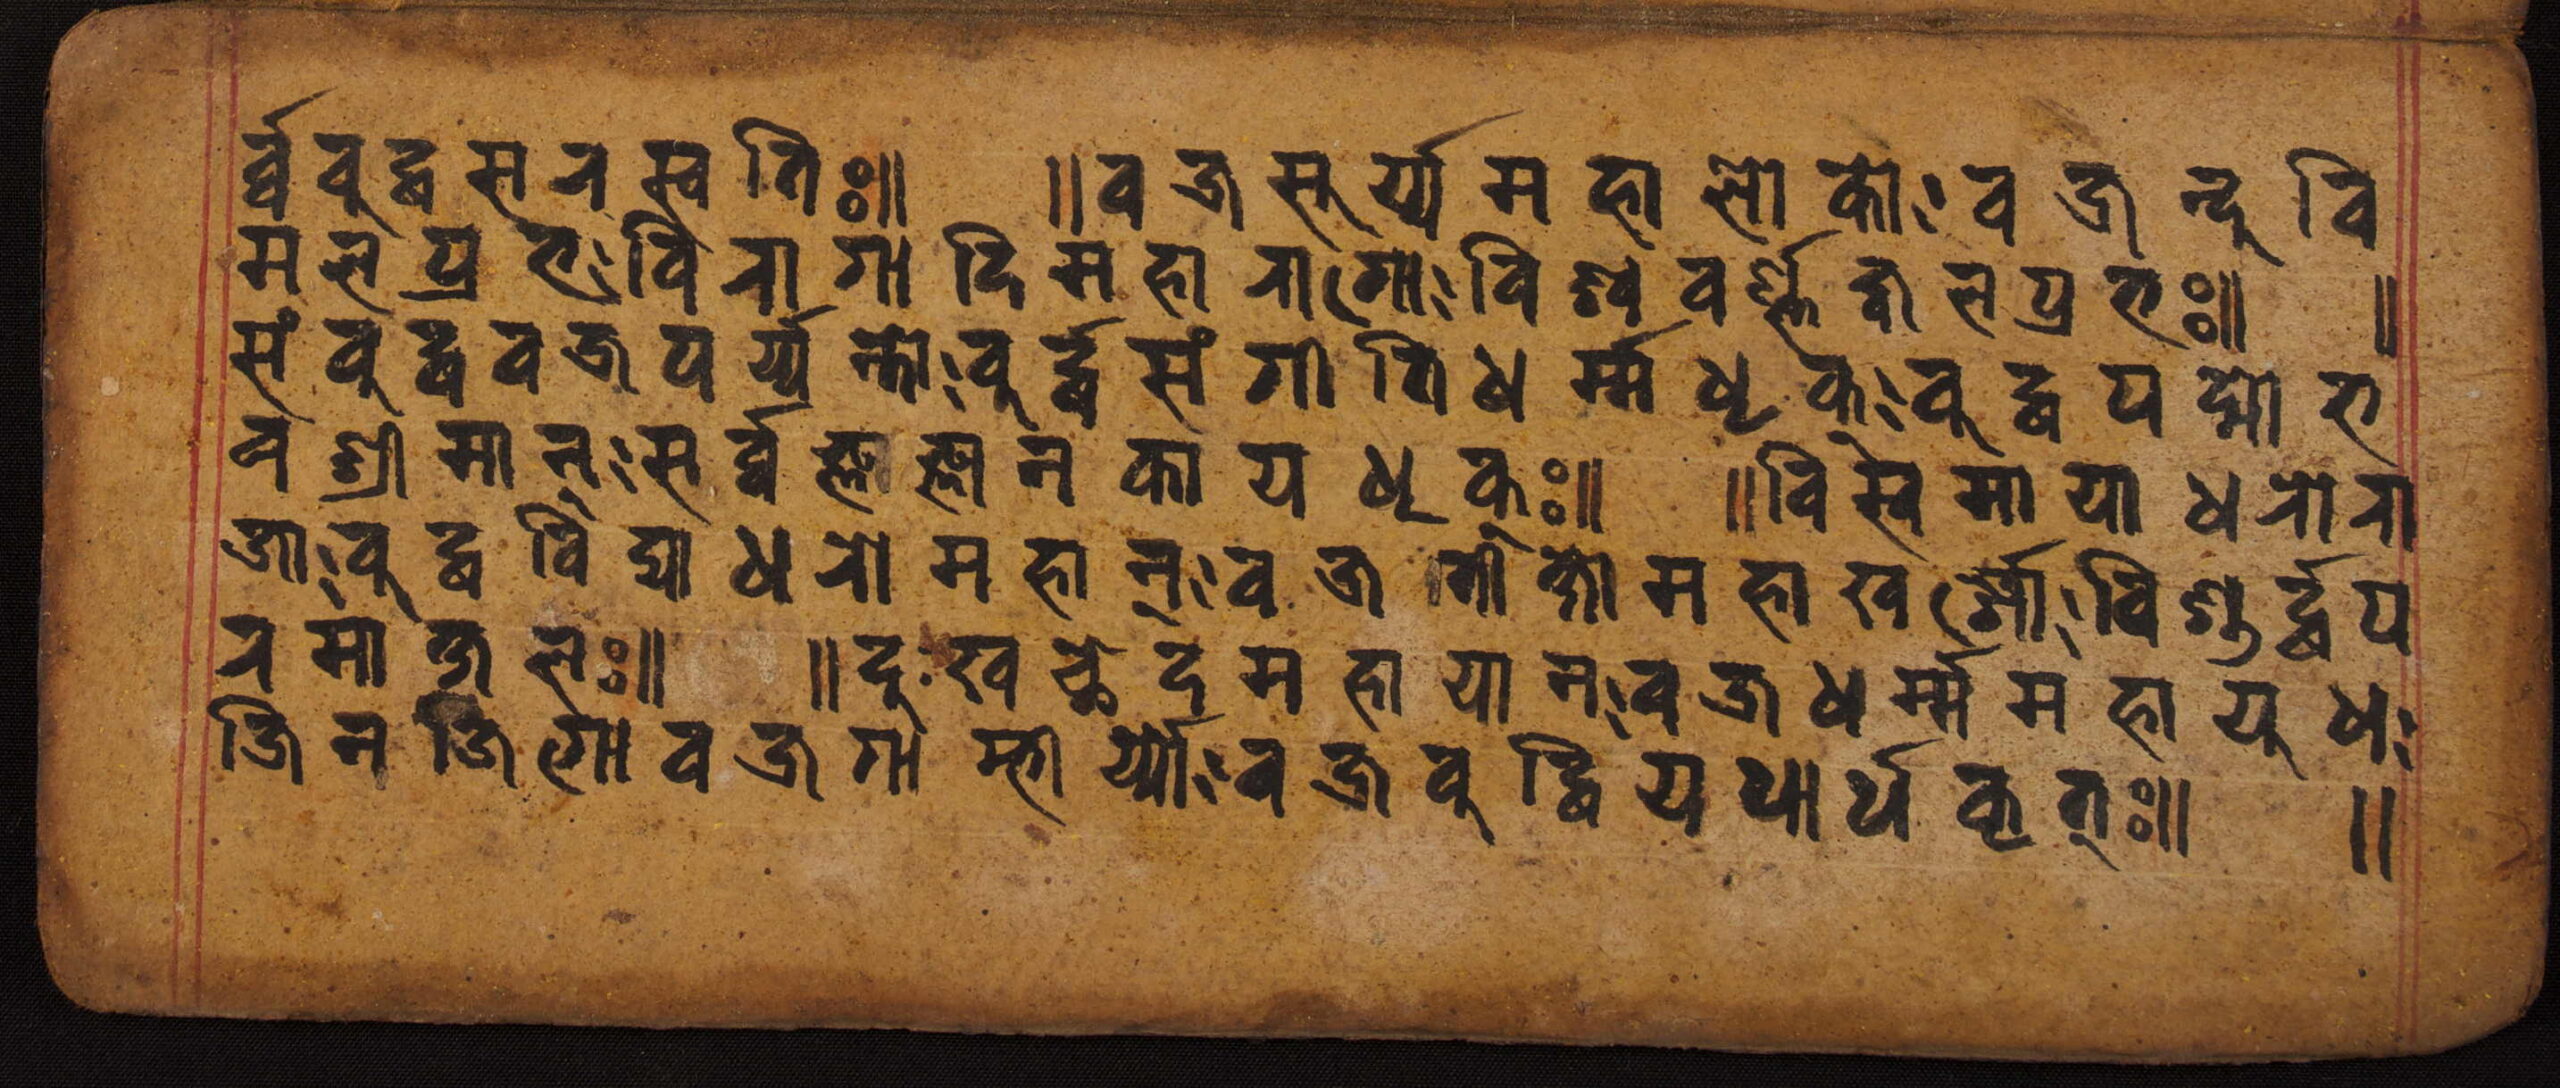 र्व्वबुद्धसरस्वतिः॥ ॥वज्रसूर्य्यमहालोकोःवज्रन्दुवि
मलप्रभःविरागादिमहारागोःविश्ववर्ण्णज्वलप्रभः॥ ॥
संबुद्धवज्रपर्य्यन्कोःबुर्द्धसंगीतिधर्म्मधृक्ःबुद्धपद्मोभ
वश्रीमान्ःसर्व्वज्ञज्ञानकायधृक्ः॥ ॥विस्वेमायाधरोरा
जाःबुद्धविद्याधरोमहान्ःवज्रतीक्ष्णोमहाखर्ङ्गोःविशुर्द्धप
रमाक्षलः॥ ॥दुःखच्छेदमहायानःवज्रधर्म्ममहायुधः
जिनजिग्गावज्रगाम्भीर्य्योःवज्रबुद्धियथार्थकृत्ः॥ ॥